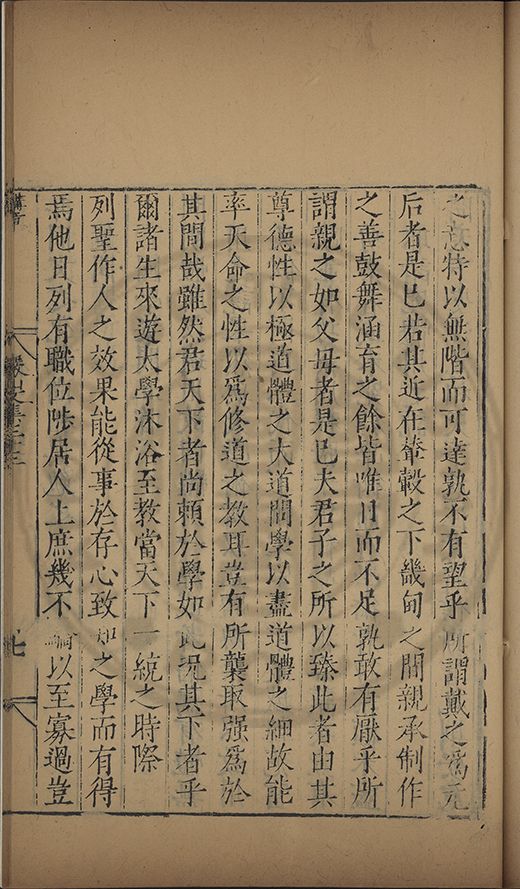 之意特以無階而可達孰不有望乎所謂戴之爲元
后者是已若其近在輦轂之下畿甸之間親承制作
之善鼓舞涵育之餘皆唯日而不足孰敢有厭乎所
謂親之如父母者是已夫君子之所以臻此者由其
尊德性以極道體之大道問學以盡道體之細故能
率天命之性以爲修道之教耳豈有所襲取强爲於
其間哉雖然君天下者尚賴於學如此况其下者乎
爾諸生來遊太學沐浴至教當天下一統之時際
列聖作人之效果能從事於存心致知之學而有得
焉他日列有職位陟居人上庶幾不 以至寡過豈
講章
七